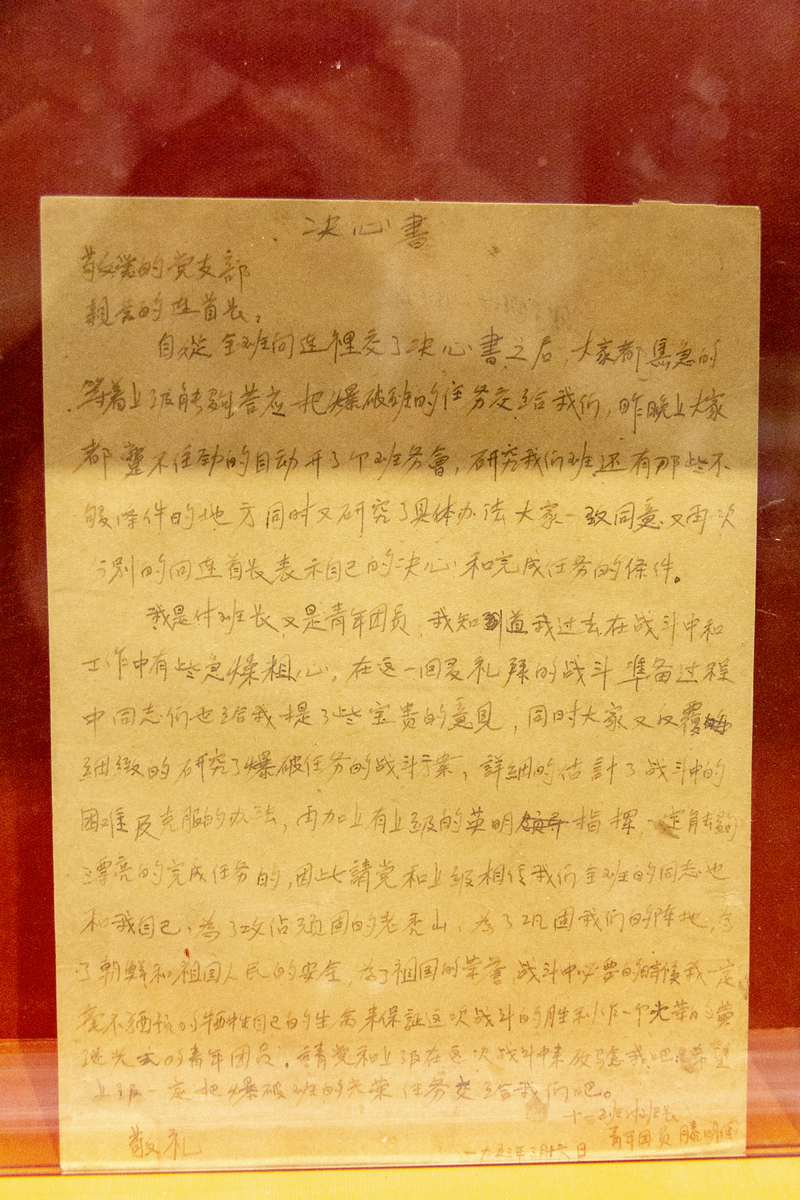 决心書
敬爱的党支部
親爱的连首长：
自从全班向连裡交了决心書之后，大家都焦急的
等着上级能夠答应把爆破班的任务交给我们，昨晚上大家
都 不住劲的自动开了个班务會，研究我们班还有那些不
够條件的地方同时又研究了具体办法大家一致同意又再次
的向连首长表示自己的决心和完成任务的條件。
我是付班长又是青年团员，我知道我过去在战斗中和
工作中有些急燥粗心，在这一回 礼 的战斗準备过程
中同志们也给我提了些宝贵的意見，同时大家又反覆
细緻的研究了爆破任务的战斗方案，詳細的估計了战斗中的
困难及克服的办法，再加上有上级的英明指揮，一定能夠
漂亮的完成任务的，因此請党和上级相信我们全班的同志也
和我自己，为了攻佔顽固的老秃山，为了巩固我们的阵地，为
了朝鲜和祖国人民的安全，为了祖国的荣誉，战斗中必要的时候我一定
毫不犹豫的牺牲自己的生命来保証这次战斗的胜利作一个光荣的
的青年团员，請党和上级在这次战斗中来考驗我吧！希望
上级一定把爆破班的光荣任务交给我们吧。
十一班付班长
敬礼 青年团员 滕明国
一九五三年三月十六日